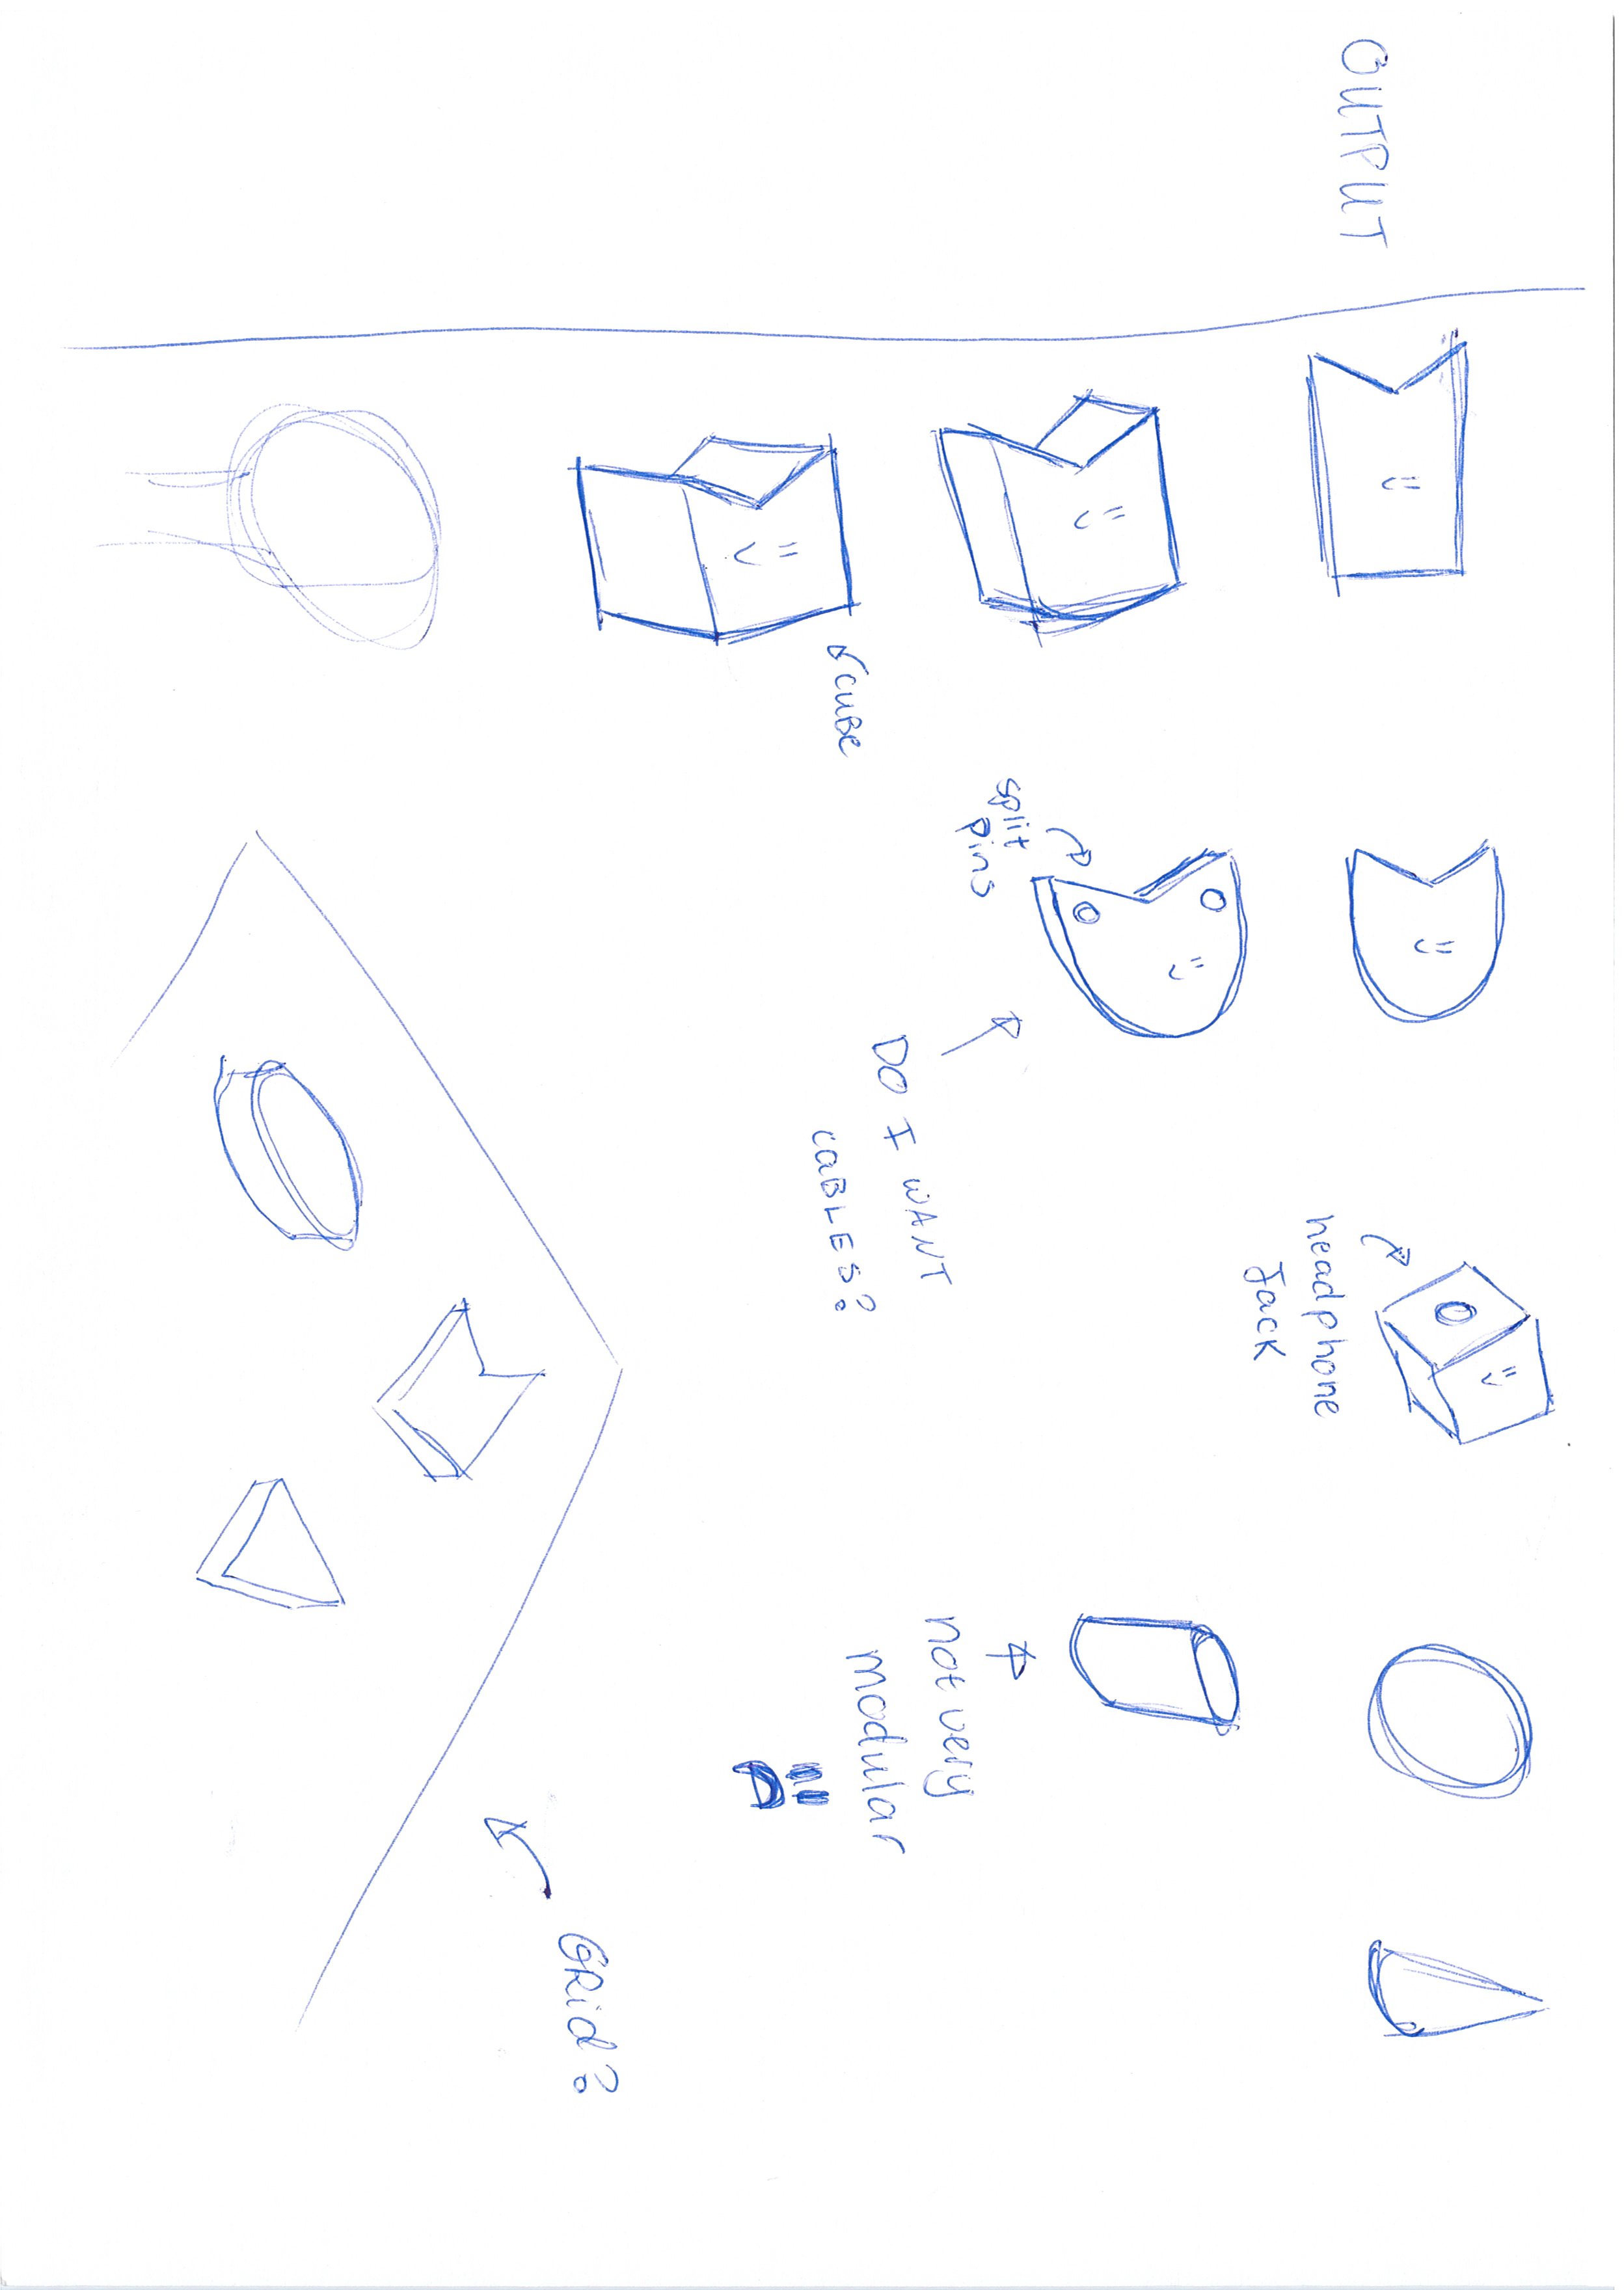 OUTPUT
headphone
Jack
split
pins
DO I WANT
CABLES?
not very
modular
CUBE
GRid?